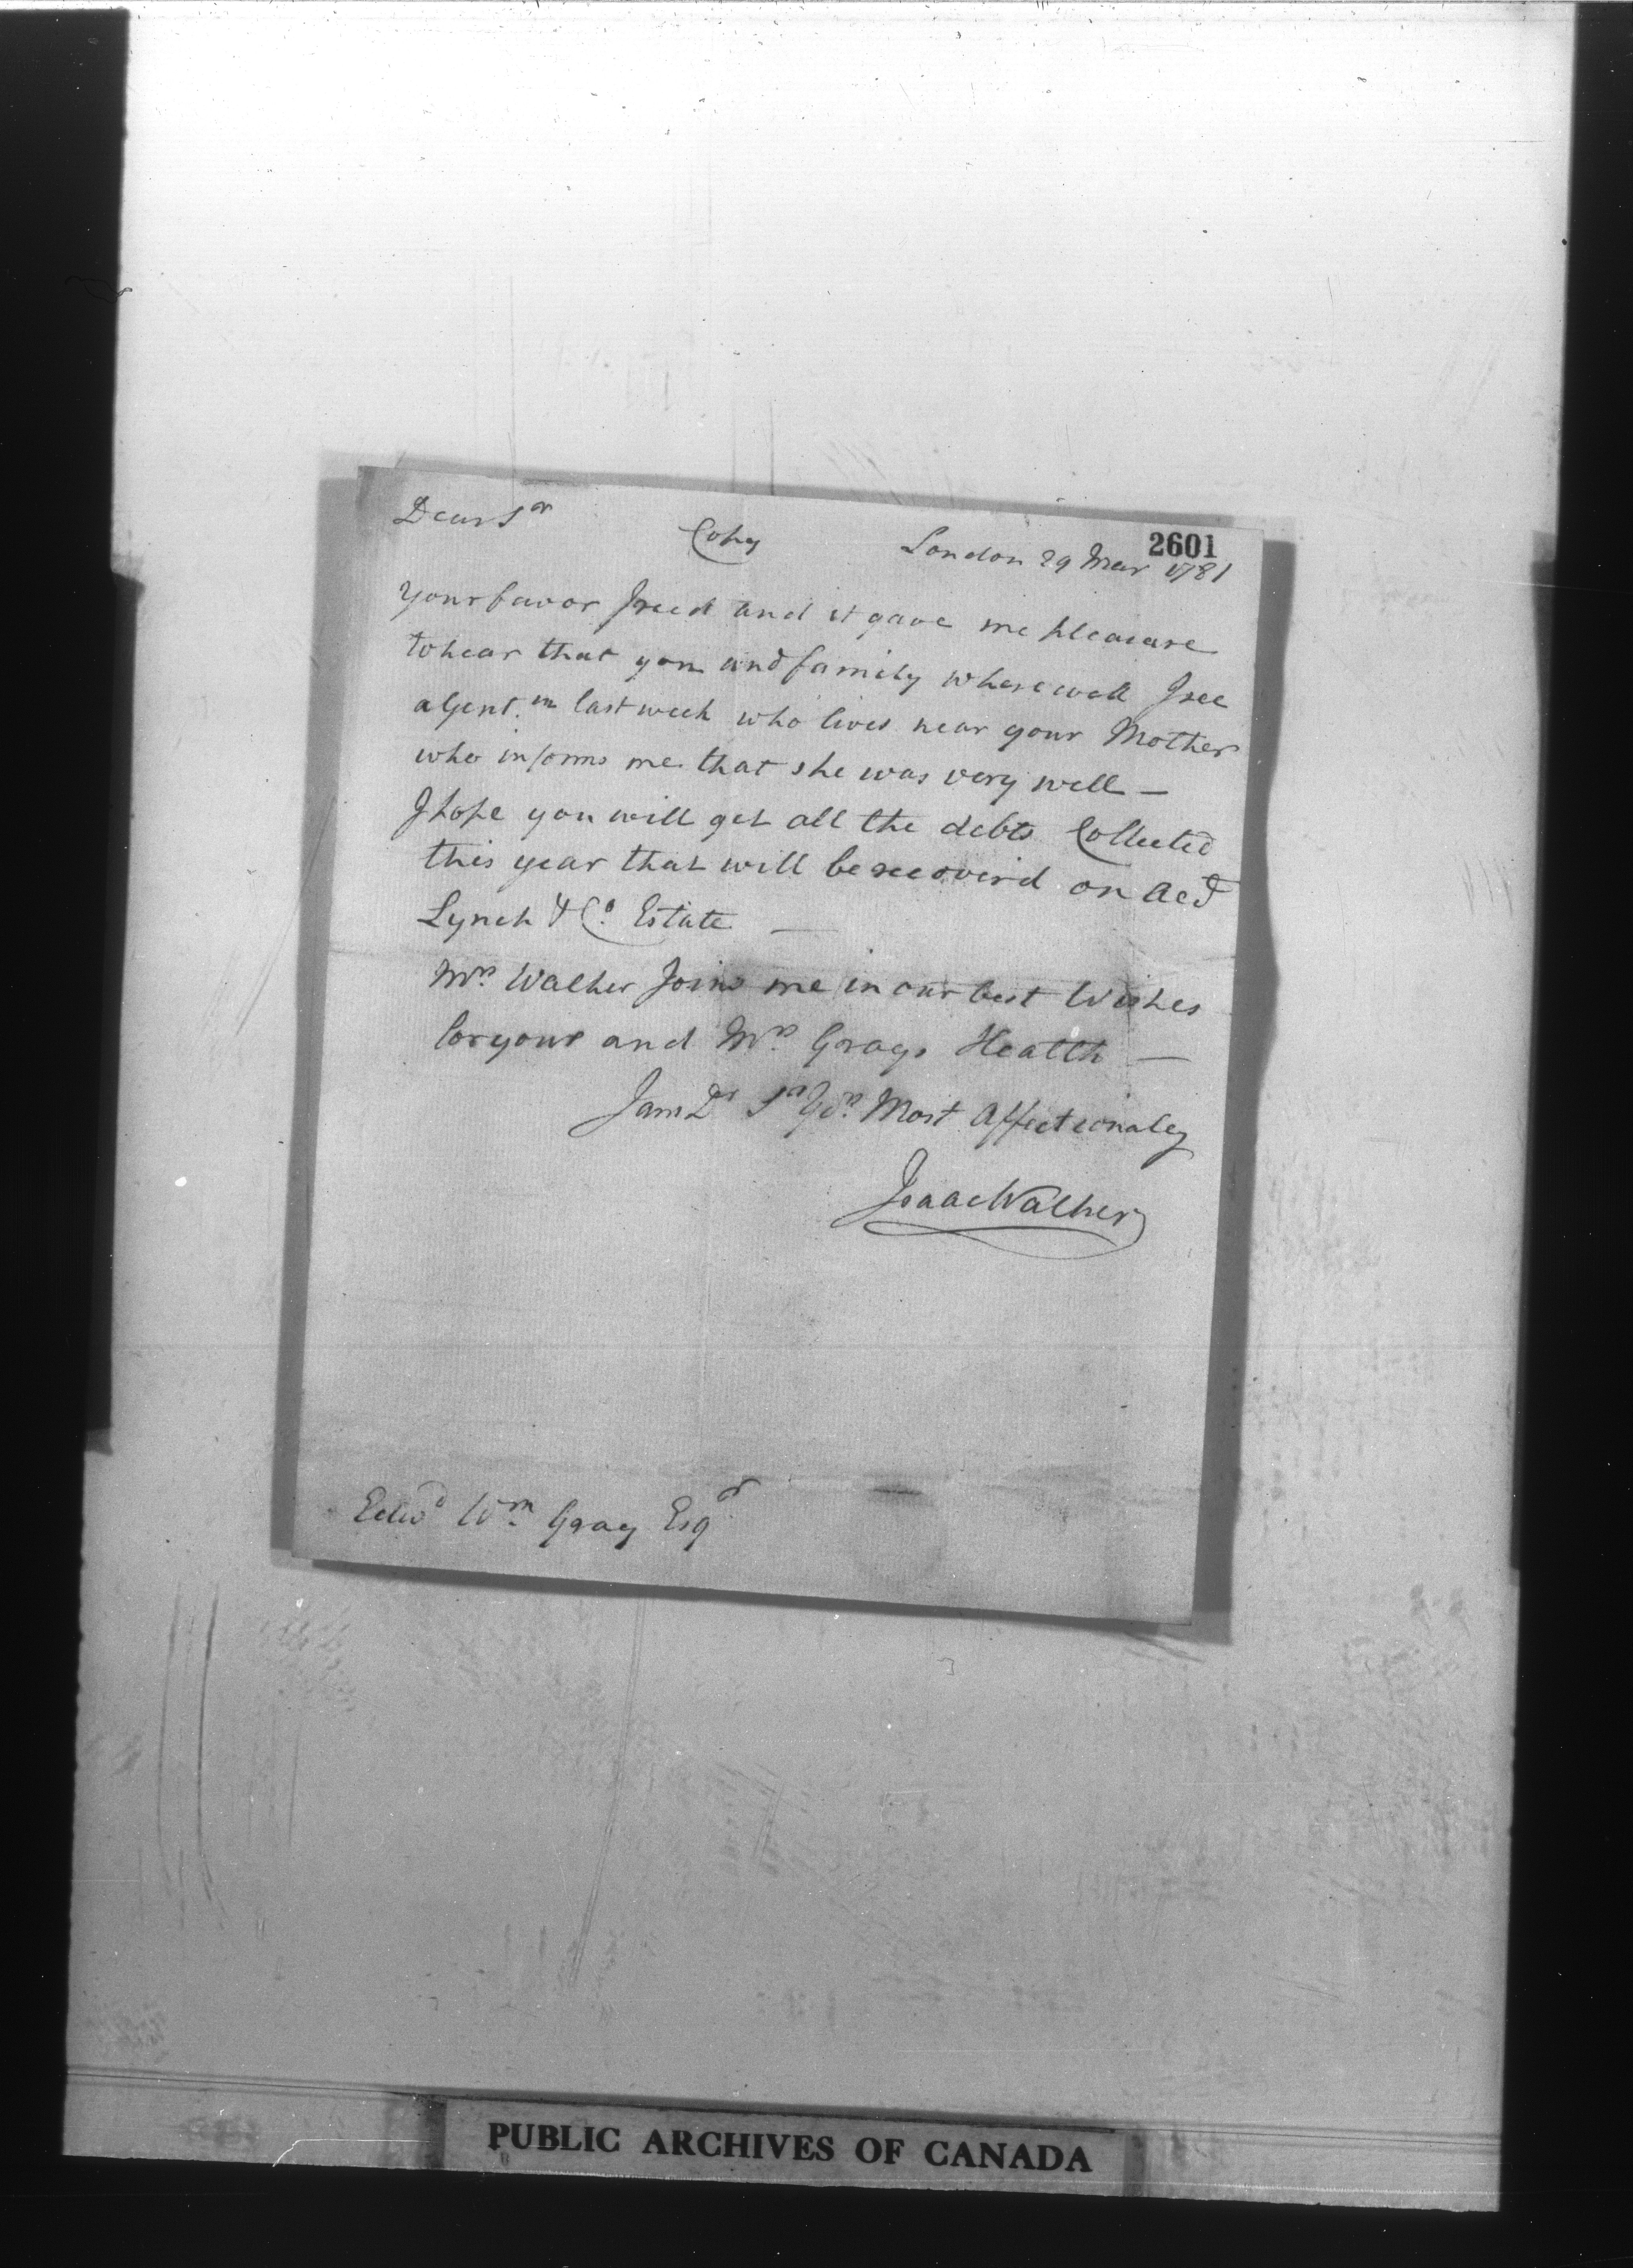 2601
Dear Sr Copy London 29 Mar 1781
Your favor I recd and it gave me pleasure
to hear that you and family where well I see
a Gentm last week who lives near your Mother
who informs me that she was very well —
I hope you will get all the debts Collected
this year that will be recoverd on Acct
Lynch & Co. Estate —
Mrs. Walker Joins me in our best Wishes
for your and Mrs. Grays Health —
I am Dr Sr Yrs. Most Affectionaley
Isaac Walker
Edwd Wm. Gray Esqr
PUBLIC ARCHIVES OF CANADA